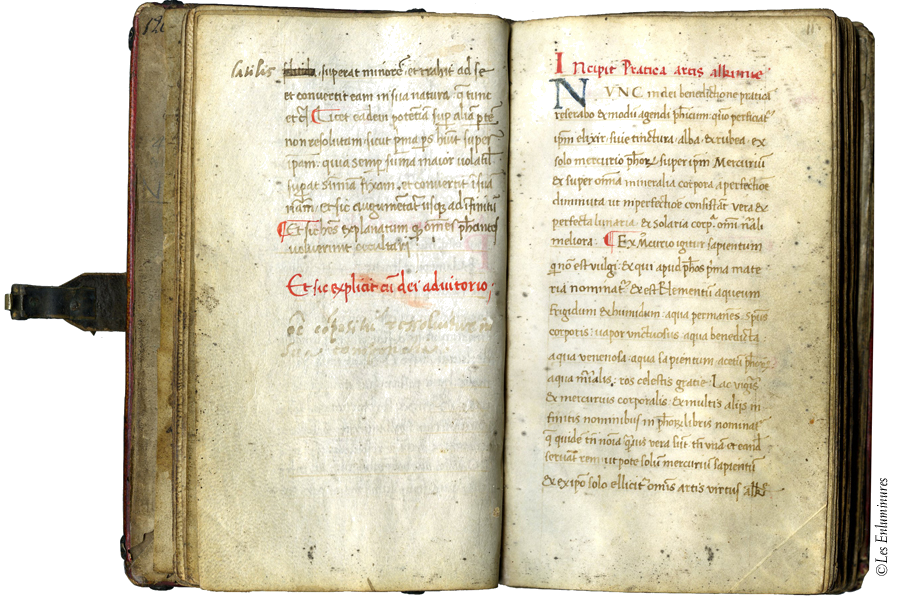 12
satilis superat minorē et trahit ad se
et convertit eam in sua natura q̄ tunc
etc̄ Licet eadem potētiā sup̄ aliā p̄tē
non resolutam sicut p̄ma p̄s huīt super
ipam: quia semp̄ suma maior volatil
sup̄at summā fixam et convertit ī suā
nām et sic augumētat̄ usq; ad ifinitū
Et sic hēs explanatum q; om̄es ph̄antes
voluerunt occultarī
Et sic explicit cū dei adiutorio;
11
Incipit Pratica artis alkimie
NVNC in dei benedictione pratica
reserabo et modū agendi ph̄icum: quo perficiat
ip̄m elixir: siue tinctura alba et rubea ex
solo mercurio ph̄or; super ip̄m Mercuriū
et super om̄ia mineralia corpora a perfectiōe
diminuta ut imperfectōe consistat vera et
perfecta lunaria et solaria corp̄a om̄i nāli
meliora: Ex M̄curio igitur sapientum
qui nō est vulgi: et qui apud ph̄os p̄ma mate
ria nominat̄ et est Elementū aqueum
frigidum et humidum: aqua permanes sp̄us
corporis: uapor vnctuosus aqua benedicta
aqua venenosa aqua sapientum acetū ph̄or;
aqua mīalis: ros celestis gratie Lac virgīs
et mercurius corporalis et multis alijs in
finitis nominibus in ph̄or; libris nominat̄
q̄ quidē in noīa q̄uis vera sint tn̄ unā et eand̄
servāt rem ut pote solū mercuriū sapientū
et ex ip̄o solo ellicit̄ om̄is artis virtus
©Les Enluminures